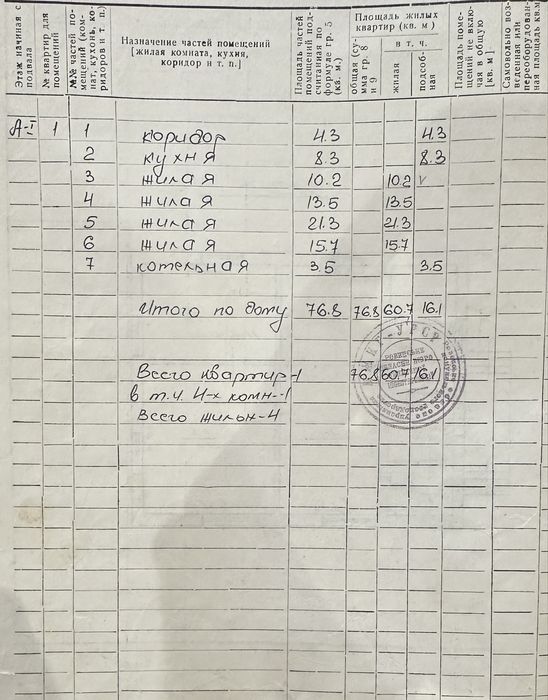 Этаж начиная с подвала
№ квартир для помещений
№№ частей помещений (комнат, кухонь, коридоров и т. п.)
Назначение частей помещений
[жилая комната, кухня,
коридор и т. п.]
Площадь частей помещений подсчитанная по формуле гр. 5 (кв. м.)
Площадь жилых
квартир (кв. м)
общая (сумма гр. 8 и 9
в т. ч.
жилая
подсобная
Площадь помещений не включая в общую [кв. м]
Самовольно возведенная или переоборудованная площадь кв.м
А-I 1 1 коридор 4.3 4.3
2 кухня 8.3 8.3
3 жилая 10.2 10.2 v
4 жилая 13.5 13.5
5 жилая 21.3 21.3
6 жилая 15.7 15.7
7 котельная 3.5 3.5
Итого по дому 76.8 76.8 60.7 16.1
Всего квартир-1 76.8 60.7 16.1
в т.ч. 4-х комн-1
Всего жильн-4